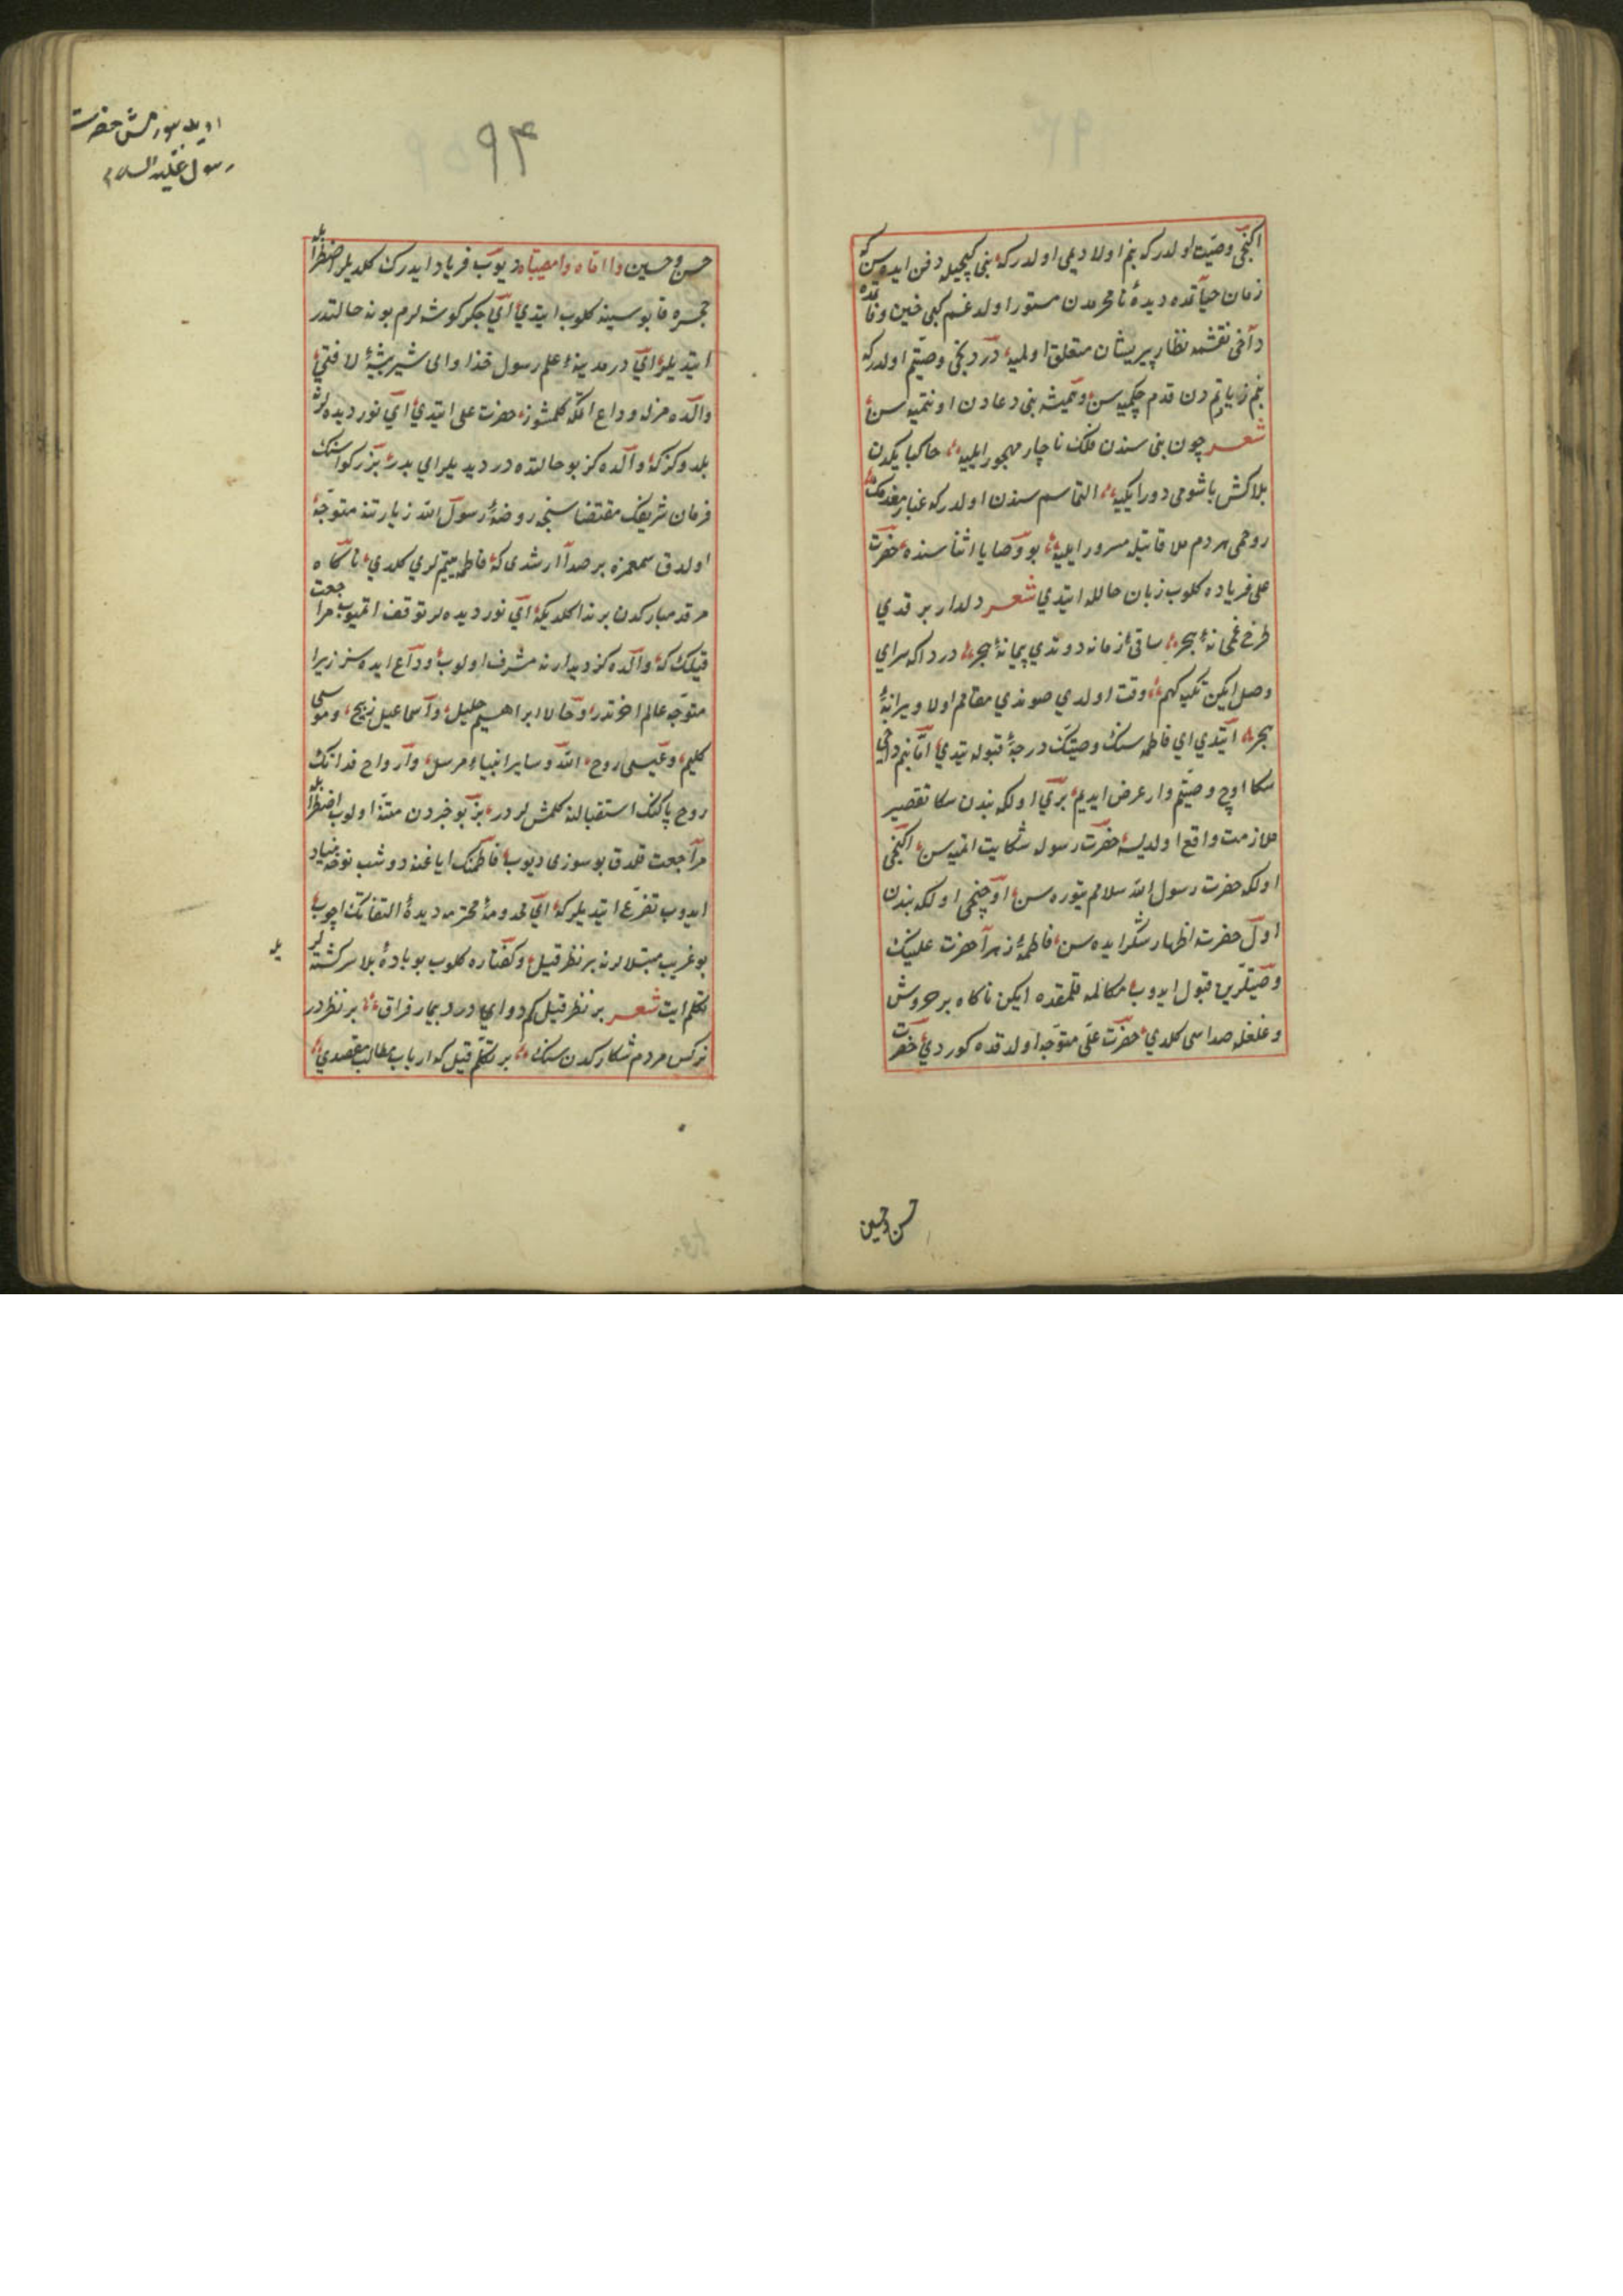 اكنجی وصیت اولدر كه بنم اولادیمی اولدر كه بنی كیجیله دفن ایده سن كه
زمان حیاتمده دیدهٔ نامحرمدن مستور اولدغم كبی حین وفاتمده
داخی نعشمه نظار پریشان متعلق اولمیه دردنجی وصیتم اولدر كه
بنم زیارتمدن قدم چكمیه سن و همیشه بنی دعادن اونتمیه سن
شعر چون بنی سندن فلك ناچار مهجور ایلیه خاكپایكدن
بلاكش باشومی دور ایلیه التماسم سندن اولدر كه غبار مقدمك
روحمی هردم ملاقاتیله مسرور ایلیه بو وصایا اثناسنده حضرت
علی فریاده كلوب زبان حالله ایتدی شعر دلدار بر قدی
طرف غمخانهٔ هجر ساقئ زمانه دوندی پیمانهٔ هجر دردا كه سرای
وصل ایكن تكیه كهم وقت اولدی صوندی مقامم اولا ویرانهٔ
هجر ایتدی ای فاطمه سنك وصیتك درجهٔ قبوله یتدی اما بنم داخی
سكا اوچ وصیتم وار عرض ایدیم بری اولكه بندن سكا تقصیر
ملازمت واقع اولدیسه حضرت رسوله شكایت اتمیه سن اكنجی
اولكه حضرت رسول الله سلامم یتوره سن اوچنجی اولكه بندن
اول حضرته اظهار شكر ایده سن فاطمهٔ زهرا حضرت علینك
وصیتلرین قبول ایدوب مكالمه قلمقده ایكن ناكاه بر خروش
و غلغله صداسی كلدی حضرت علی متوجه اولدقده كوردی حضرت
حسن و حسین
۹۴
ایدیله سوزمش حضرت
رسول علیه السلام
حسن و حسین وا اماه وا مصیبتاه دیوب فریاد ایدرك كلدیلر اضطرابله
حجره قاپوسینه كلوب ایتدی ای جكر كوشه لرم بو نه حالتدر
ایتدیلر ای در مدینهٔ علم رسول خدا و ای شیر بیشهٔ لا فتی
والده مزله وداع اتمكه كلمشوز حضرت علی ایتدی ای نور دیده لر
بلدوكز كه والده كز بو حالتده در دیدیلر ای پدر بزركوار سنك
فرمان شریفك مقتضاسنجه روضهٔ رسول الله زیارتنه متوجه
اولدق سمعمزه بر صدا ارشدی كه فاطمه یتیملری كلدی ناكاه
مرقد مباركدن بر ندا كلدیكه ای نور دیده لر توقف اتمیوب مراجعت
قیلك كه والده كز دیدارنه مشرف اولوب وداع ایده سز زیرا
متوجه عالم اخرتدر و حالا ابراهیم خلیل و اسماعیل ذبیح و موسی
كلیم و عیسی روح الله و سایر انبیاء مرسل و ارواح فدا نك
روح پاكنك استقبالنه كلمشلردر بز بو خبردن متنبه اولوب اضطرابله
مراجعت قلدق بو سوزی دیوب فاطمنك ایاغنه دوشب نوحه بنیاد
ایدوب تضرع ایتدیلر كه ای مخدومهٔ محترمه دیدهٔ التفاتك اچوب
بو غریب مبتلالره بر نظر قیل و كفتاره كلوب بو بادهٔ بلا سركشته لریله
تكلم ایت شعر بر نظر قیل كم دوای درد بیمار فراق بر نظردر
نركس مردم شكاركدن سنك بر تكلم قیل كه ارباب مطالب مقصدی
یله